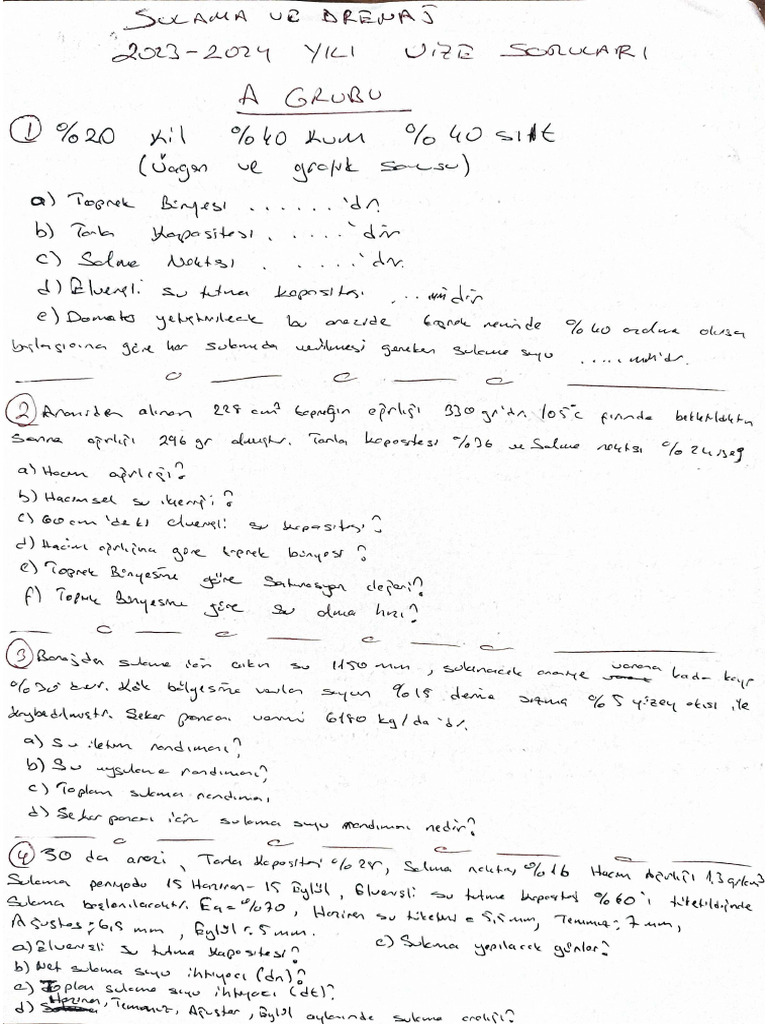 SULAMA VE DRENAJ
2023-2024 YILI VİZE SORULARI
A GRUBU
① %20 Kil %40 Kum %40 silt
(Üçgen ve grafik sorusu)
a) Toprak Bünyesi .......'dır.
b) Tarla Kapasitesi ......'dir
c) Solma Noktası ......'dır.
d) Elverişli su tutma kapasitesi ... mm'dir
e) Domates yetiştirilecek bu arazide toprak neminde %40 azalma olursa
başlangıcına göre her sulamada verilmesi gereken sulama suyu ..... mm'dir.
② Araziden alınan 228 cm³ toprağın ağırlığı 330 gr'dır. 105°c fırında bekletildikten
sonra ağırlığı 296 gr olmuştur. Tarla kapasitesi %36 ve Solma noktası %24 ise;
a) Hacim ağırlığı?
b) Hacimsel su içeriği?
c) 60 cm'deki elverişli su kapasitesi?
d) Hacim ağırlığına göre toprak bünyesi?
e) Toprak Bünyesine göre Saturasyon değeri?
f) Toprak Bünyesine göre su alma hızı?
③ Barajdan sulama için çıkan su 1150 mm, sulanacak araziye varana kadar kayıp
%30'dur. Kök bölgesine varılan suyun %15 derine sızma %5 yüzey akışı ile
kaybedilmiştir. Şeker pancarı verimi 6180 kg/da'dır.
a) Su iletim randımanı?
b) Su uygulama randımanı?
c) Toplam sulama randımanı
d) Şeker pancarı için sulama suyu randımanı nedir?
④ 30 da arazi, Tarla Kapasitesi %28, Solma noktası %16 Hacim Ağırlığı 1.3 gr/cm³
Sulama periyodu 15 Haziran - 15 Eylül, Elverişli su tutma kapasitesi %60'ı tüketildiğinde
Sulama başlanılacaktır. Ea = %70, Haziran su tüketimi = 5,5 mm, Temmuz = 7 mm,
Ağustos = 6,5 mm, Eylül = 5 mm.
a) Elverişli su tutma kapasitesi?
e) Sulama yapılacak günler?
b) Net sulama suyu ihtiyacı (dn)?
c) Toplam sulama suyu ihtiyacı (dt)?
d) Haziran, Temmuz, Ağustos, Eylül aylarında sulama aralığı?